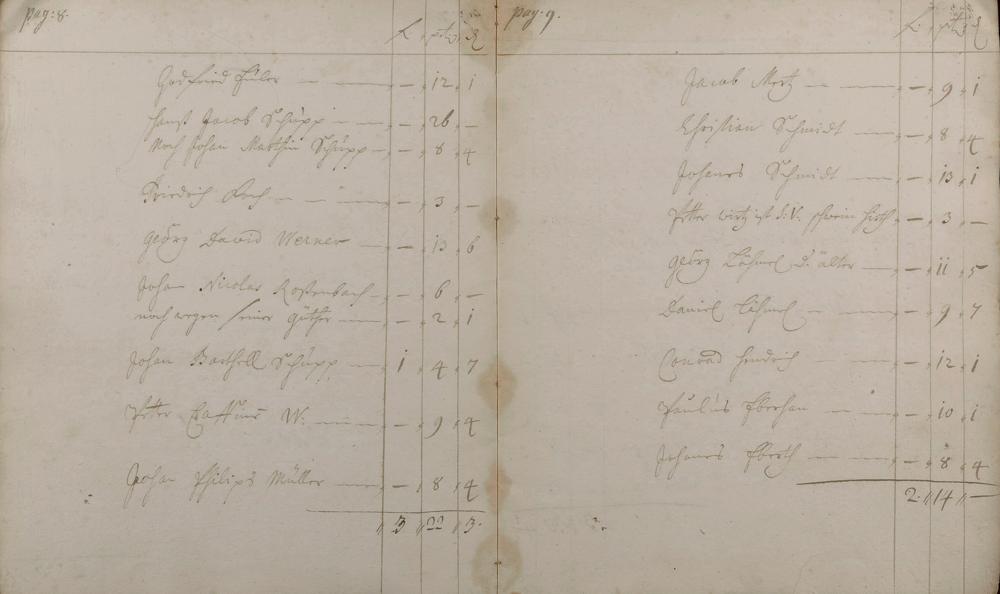 pag: 8.
Godfried Euler — — 12 1
Hanß Jacob Schupp — — 26 —
Noch Johan Matthin Schupp — — 8 4
Friedrich Koch — — — 3 —
Georg David Werner — — 13 6
Johan Nicolas Roßenbach — — 6 —
noch wegen seiner güther — — 2 1
Johan Barthell Schupp — 1 4 7
Petter W. — — 9 4
Johan Philips Müller — — 8 4
3 22 3.
pag: 9.
Jacob Mertz — — 9 1
Christian Schmidt — — 8 4
Johanes Schmidt — — 13 1
Petter wirtz ist d. V. schwein hirth — 3 —
Georg Löhmel D. älter — — 11 5
Daniel Löhmel — — 9 7
Conrad Hendrich — — 12 1
Paulus Eberhan — — 10 1
Johanes Eberth — — 8 4
2. 14 —